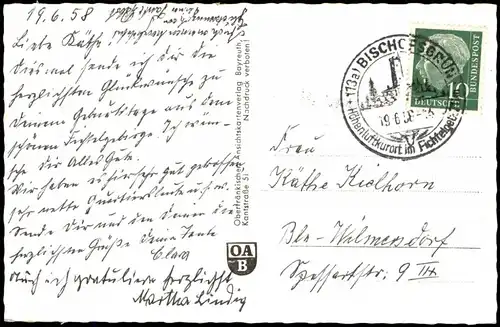 19.6.58
Liebe Käthe
Diesmal sende ich dir die
herzlichsten Glückwünsche zu
deinem Geburtstage aus dem
schönen Fichtelgebirge. Ich wün-
sche dir Alles Gute.
Wir haben es hier sehr gut getroffen
sehr nette Quartiersleute u.s.w.
Sende Dir und den Deinen die
herzlichsten Grüße deine Tante
Clara
Auch ich gratuliere herzlichst
Martha Lindig
Oberfränkischer Ansichtskartenverlag Bayreuth
Kantstraße 51 Nachdruck verboten!
OA
B
(13a) BISCHOFSGRÜN
19.6.58
Höhenluftkurort im Fichtelgeb.
DEUTSCHE BUNDESPOST
10
Frau
Käthe Kielhorn
Bln-Wilmersdorf
Spessartstr. 9 III